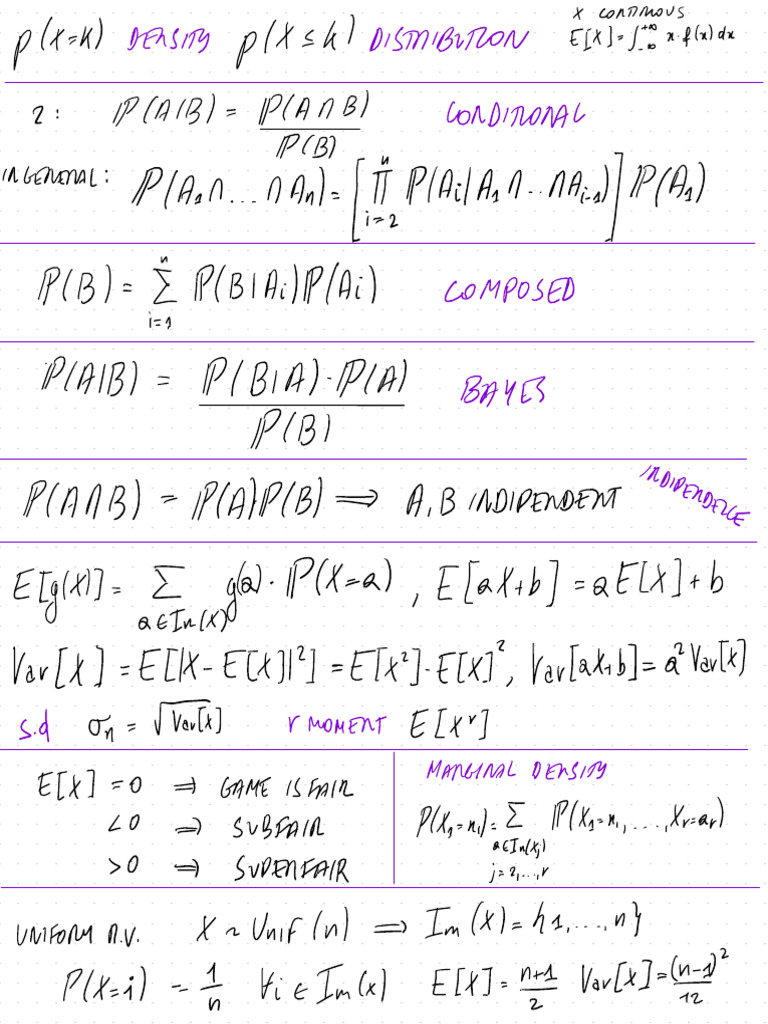 p(X=k) DENSITY p(X≤k) DISTRIBUTION
X CONTINOUS
E[X]=∫_{-∞}^{+∞} x·f(x)dx
2: ℙ(A|B) = ℙ(A∩B)/ℙ(B) CONDITIONAL
IN GENERAL: ℙ(A₁∩...∩Aₙ)=[∏_{i=2}^{n} ℙ(Ai|A₁∩..∩A_{i-1})]ℙ(A₁)
ℙ(B)= ∑_{i=1}^{n} ℙ(B|Ai)ℙ(Ai) COMPOSED
ℙ(A|B) = ℙ(B|A)·ℙ(A)/ℙ(B) BAYES
ℙ(A∩B) = ℙ(A)ℙ(B) ⟹ A,B INDIPENDENT INDIPENDENCE
E[g(X)]= ∑_{a∈Im(X)} g(a)·ℙ(X=a), E[aX+b]=aE[X]+b
Var[X] = E[|X-E[X]|²]=E[X²]-E[X]², Var[aX+b]=a²Var[X]
s.d σₙ = √Var[X] r MOMENT E[Xʳ]
E[X]=0 ⟹ GAME IS FAIR
<0 ⟹ SUBFAIR
>0 ⟹ SUPERFAIR
MARGINAL DENSITY
P(X₁=x₁)=∑_{a∈Im(Xj) j=2,...,r} ℙ(X₁=x₁,...,Xr=ar)
UNIFORM R.V. X ~ Unif(n) ⟹ Im(X)={1,...,n}
P(X=i) = 1/n ∀i∈Im(X) E[X]=n+1/2 Var[X]=(n-1)²/12